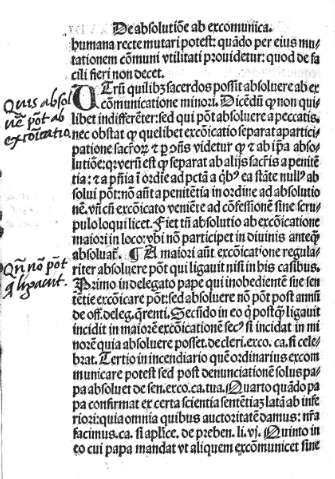 De absolutiõe ab excomunica.
humana recte mutari potest: quãdo per eius mu-
tationem cõmuni vtilitati prouidetur: quod de fa
cili fieri non decet.
UTrũ quilibꝫ sacerdos possit absoluere ab ex
cõmunicatione minori. Dicẽdũ ꝙ non qui-
libet indifferẽter: sed qui põt absoluere a peccatis.
nec obstat ꝙ quelibet excõicatio separat a partici-
patione sacroꝝ: ⁊ ꝑ ꝯñs videtur ꝙ ⁊ ab ipa absolu
tiõe: qꝛ verũ est ꝙ separat ab alijs sacris a penitẽ
tia: ⁊ a pñia ĩ ordĩe ad pctã a qbꝰ ea stãte nullꝰ ab
solui põt: nõ aũt a penitẽtia in ordine ad absolutio
nẽ. vñ cũ excõicato venire ad cõfessionẽ sine scru-
pulo loqui licet. Fiet tñ absolutio ab excõicatione
maiori in loco: vbi nõ participet in diuinis anteqꝫ
absoluať. ¶ A maiori aũt excõicatione regula-
riter absoluere põt qui ligauit nisi in his casibus.
Primo in delegato pape qui inobediẽte sue sen-
tẽtie excõicare põt: sed absoluere nõ põt post annũ
de off. deleg. qrenti. Secũdo in eo q postqꝫ ligauit
incidit in maiorẽ excõicationẽ secꝰ si incidat in mi
norẽ quia absoluere posset. de cleri. exco. ca. si cele-
brat. Tertio in incendiario quẽ ordinarius excom
municare potest sed post denunciationẽ solus pa-
pa absoluet de sen. exco. ca. tua. Quarto quãdo pa
pa confirmat ex certa scientia sententiaꝫ latã ab infe
riori: quia omnia quibus auctoritatẽ damus: nrã
facimus. ca. si aplice. de preben. li. vj. Quinto in
eo cui papa mandat vt aliquem excõmunicet sine
Quis absol
uẽ põt ab
excõicatio
Qñ nõ põt
q ligauit.